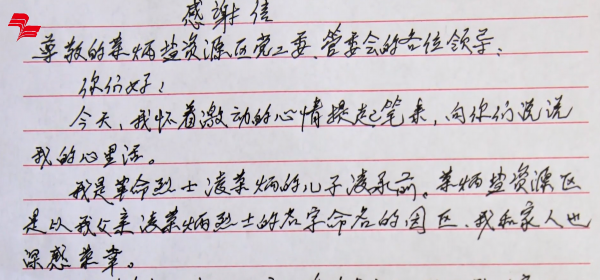 感謝信
尊敬的菜炳盐资源区党工委、管委会的各位领导：
你们好！
今天，我怀着激动的心情提起笔来，向你们说说
我的心里话。
我是革命烈士凌菜炳的儿子凌承前。菜炳盐资源区
是以我父亲凌菜炳烈士的名字命名的园区，我和家人也
深感荣幸。